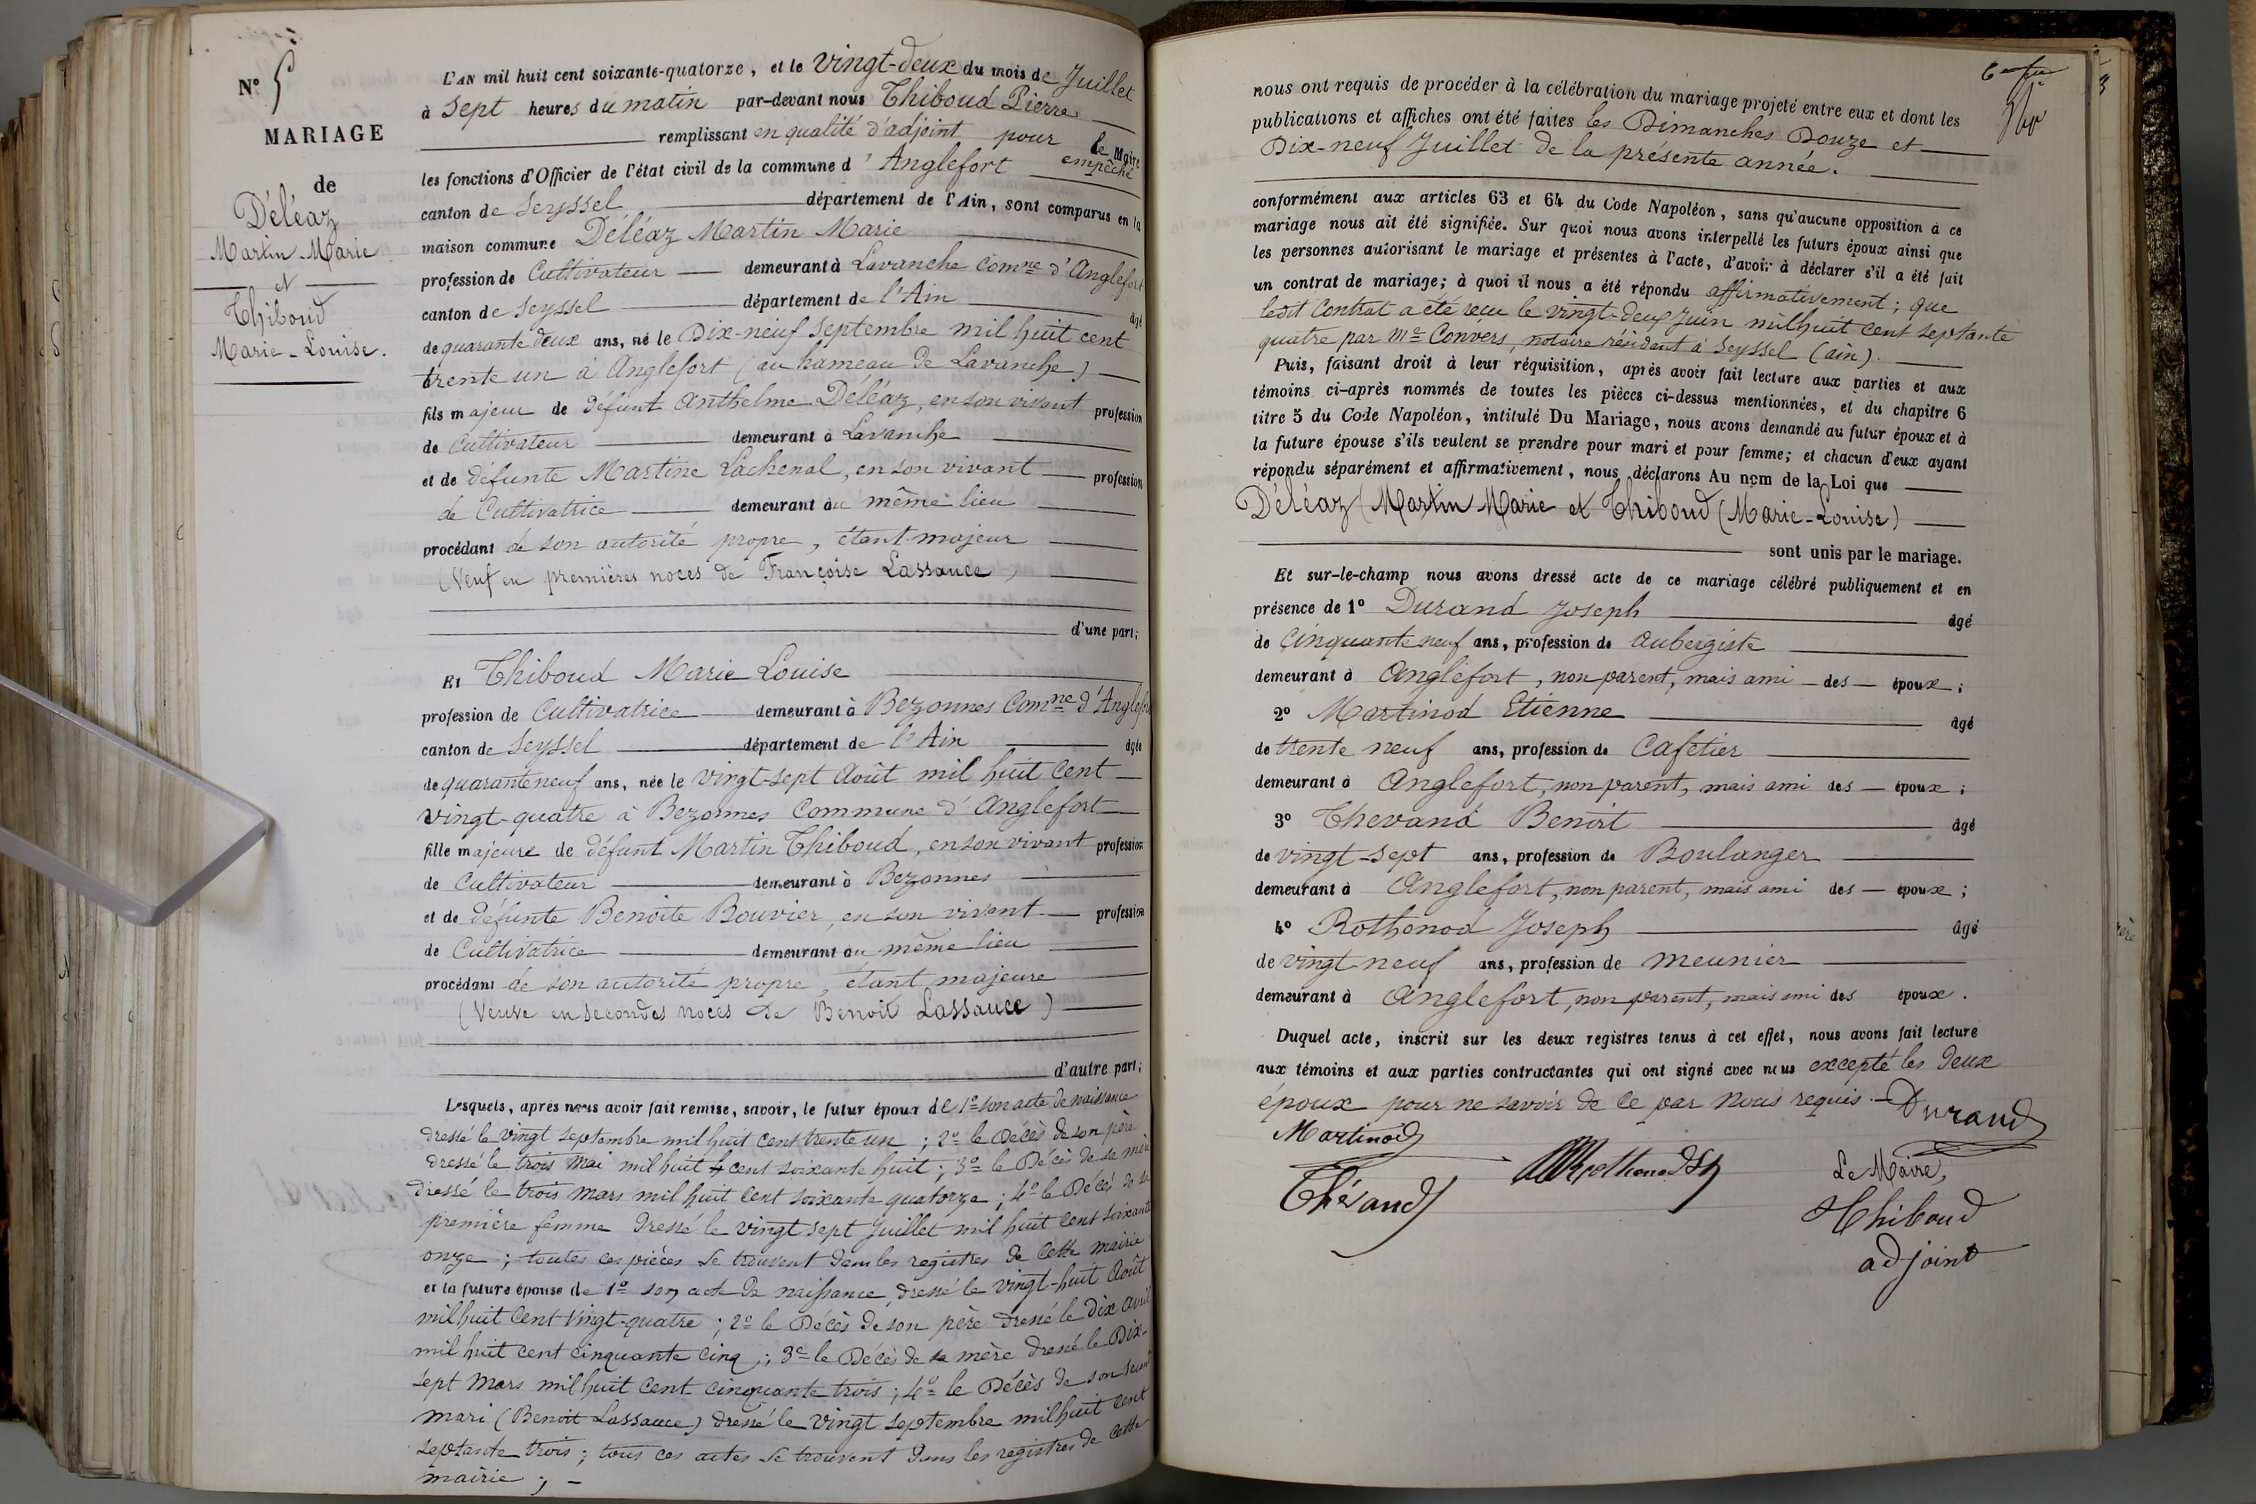 N° 5
MARIAGE
de
Déléaz
Martin-Marie
et
Thiboud
Marie-Louise.
L'AN mil huit cent soixante-quatorze, et le vingt-deux du mois de Juillet
à sept heures du matin par-devant nous Thiboud Pierre
remplissant en qualité d'adjoint pour le Maire empêché
les fonctions d'Officier de l'état civil de la commune d'Anglefort
canton de Seyssel département de l'Ain, sont comparus en la
maison commune Déléaz Martin Marie
profession de Cultivateur demeurant à Lavanche Comne d'Anglefort
canton de Seyssel département de l'Ain âgé
de quarante deux ans, né le Dix-neuf septembre mil huit cent
trente un à Anglefort (au hameau de Lavanche)
fils majeur de défunt Anthelme Déléaz, en son vivant profession
de Cultivateur demeurant à Lavanche
et de défunte Martine Lachenal, en son vivant profession
de Cultivatrice demeurant au même lieu
procédant de son autorité propre, étant majeur
(Veuf en premières noces de Françoise Lassauce)
d'une part;
Et Thiboud Marie Louise
profession de Cultivatrice demeurant à Bezonnes Comne d'Anglefort
canton de Seyssel département de l'Ain âgée
de quarante neuf ans, née le vingt-sept Août mil huit cent
vingt-quatre à Bezonnes Commune d'Anglefort
fille majeure de défunt Martin Thiboud, en son vivant profession
de Cultivateur demeurant à Bezonnes
et de défunte Benoite Bouvier, en son vivant profession
de Cultivatrice demeurant au même lieu
procédant de son autorité propre, étant majeure
(Veuve en secondes noces de Benoit Lassauce)
d'autre part;
Lesquels, après nous avoir fait remise, savoir, le futur époux de 1° son acte de naissance
dressé le vingt septembre mil huit cent trente un; 2° le Décès de son père
dressé le trois Mai mil huit cent soixante huit; 3° le Décès de sa mère
dressé le trois Mars mil huit cent soixante quatorze; 4° le Décès de sa
première femme dressé le vingt sept Juillet mil huit cent soixante
onze; toutes ces pièces se trouvent dans les registres de cette mairie
et la future épouse de 1° son acte de naissance, dressé le vingt-huit Août
mil huit cent vingt-quatre; 2° le Décès de son père dressé le dix avril
mil huit cent cinquante cinq; 3° le Décès de sa mère dressé le Dix-
sept Mars mil huit cent cinquante trois; 4° le Décès de son second
mari (Benoit Lassauce) dressé le vingt septembre mil huit cent
septante trois; tous ces actes se trouvent dans les registres de cette
mairie; -
nous ont requis de procéder à la célébration du mariage projeté entre eux et dont les
publications et affiches ont été faites les Dimanches Douze et
Dix-neuf Juillet de la présente année.
conformément aux articles 63 et 64 du Code Napoléon, sans qu'aucune opposition à ce
mariage nous ait été signifiée. Sur quoi nous avons interpellé les futurs époux ainsi que
les personnes autorisant le mariage et présentes à l'acte, d'avoir à déclarer s'il a été fait
un contrat de mariage; à quoi il nous a été répondu affirmativement; que
ledit Contrat a été reçu le vingt-deux Juin mil huit cent septante
quatre par Me Convers, notaire résident à Seyssel (ain).
Puis, faisant droit à leur réquisition, après avoir fait lecture aux parties et aux
témoins ci-après nommés de toutes les pièces ci-dessus mentionnées, et du chapitre 6
titre 5 du Code Napoléon, intitulé Du Mariage, nous avons demandé au futur époux et à
la future épouse s'ils veulent se prendre pour mari et pour femme; et chacun d'eux ayant
répondu séparément et affirmativement, nous déclarons Au nom de la Loi que
Déléaz (Martin Marie et Thiboud (Marie-Louise)
sont unis par le mariage.
Et sur-le-champ nous avons dressé acte de ce mariage célébré publiquement et en
présence de 1° Durand Joseph âgé
de Cinquante neuf ans, profession de aubergiste
demeurant à Anglefort, non parent, mais ami des époux;
2° Martinod Etienne âgé
de trente neuf ans, profession de Cafetier
demeurant à Anglefort, non parent, mais ami des époux;
3° Thevand Benoit âgé
de vingt-sept ans, profession de Boulanger
demeurant à Anglefort, non parent, mais ami des époux;
4° Rothonod Joseph âgé
de vingt-neuf ans, profession de meunier
demeurant à Anglefort, non parent, mais ami des époux.
Duquel acte, inscrit sur les deux registres tenus à cet effet, nous avons fait lecture
aux témoins et aux parties contractantes qui ont signé avec nous excepté les deux
époux pour ne savoir de ce par nous requis. Durand
Martinod
Rothonod
Le Maire,
Thévand
Thiboud
adjoint